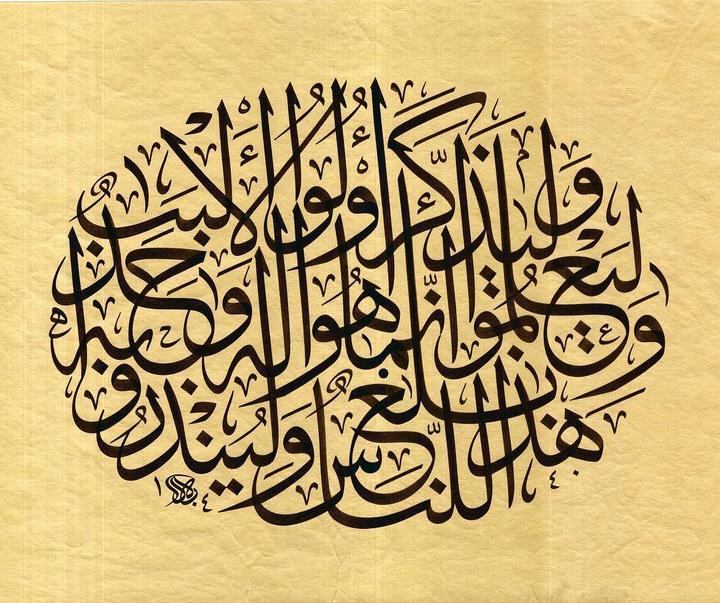 هذا بلغ للناس ولينذروا به
وليعلموا أنما هو إله وحد
وليذكر أولوا الألبب